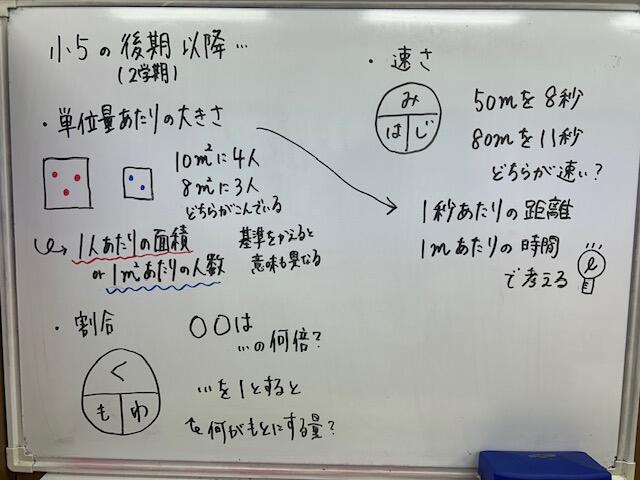 小5の後期以降…
(2学期)
・単位量あたりの大きさ
10m²に4人
8m²に3人
どちらがこんでいる
1人あたりの面積
or 1m²あたりの人数
基準をかえると
意味も異なる
・割合
く
も わ
〇〇は
…の何倍?
…を1とすると
何がもとにする量?
・速さ
み
は じ
50mを8秒
80mを11秒
どちらが速い?
1秒あたりの距離
1mあたりの時間
で考える